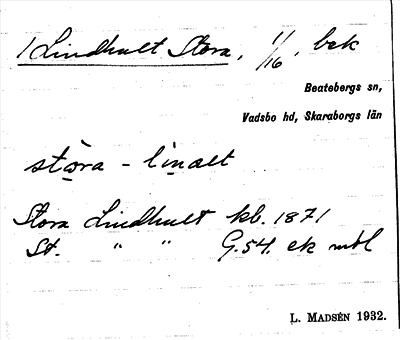 1 Lindhult Stora, 1/16, bek
Beatebergs sn,
Vadsbo hd, Skaraborgs län
stωra - linalt
Stora Lindhult kb. 1871
St. " " G.54. ek mtl
L. MADSÉN 1932.